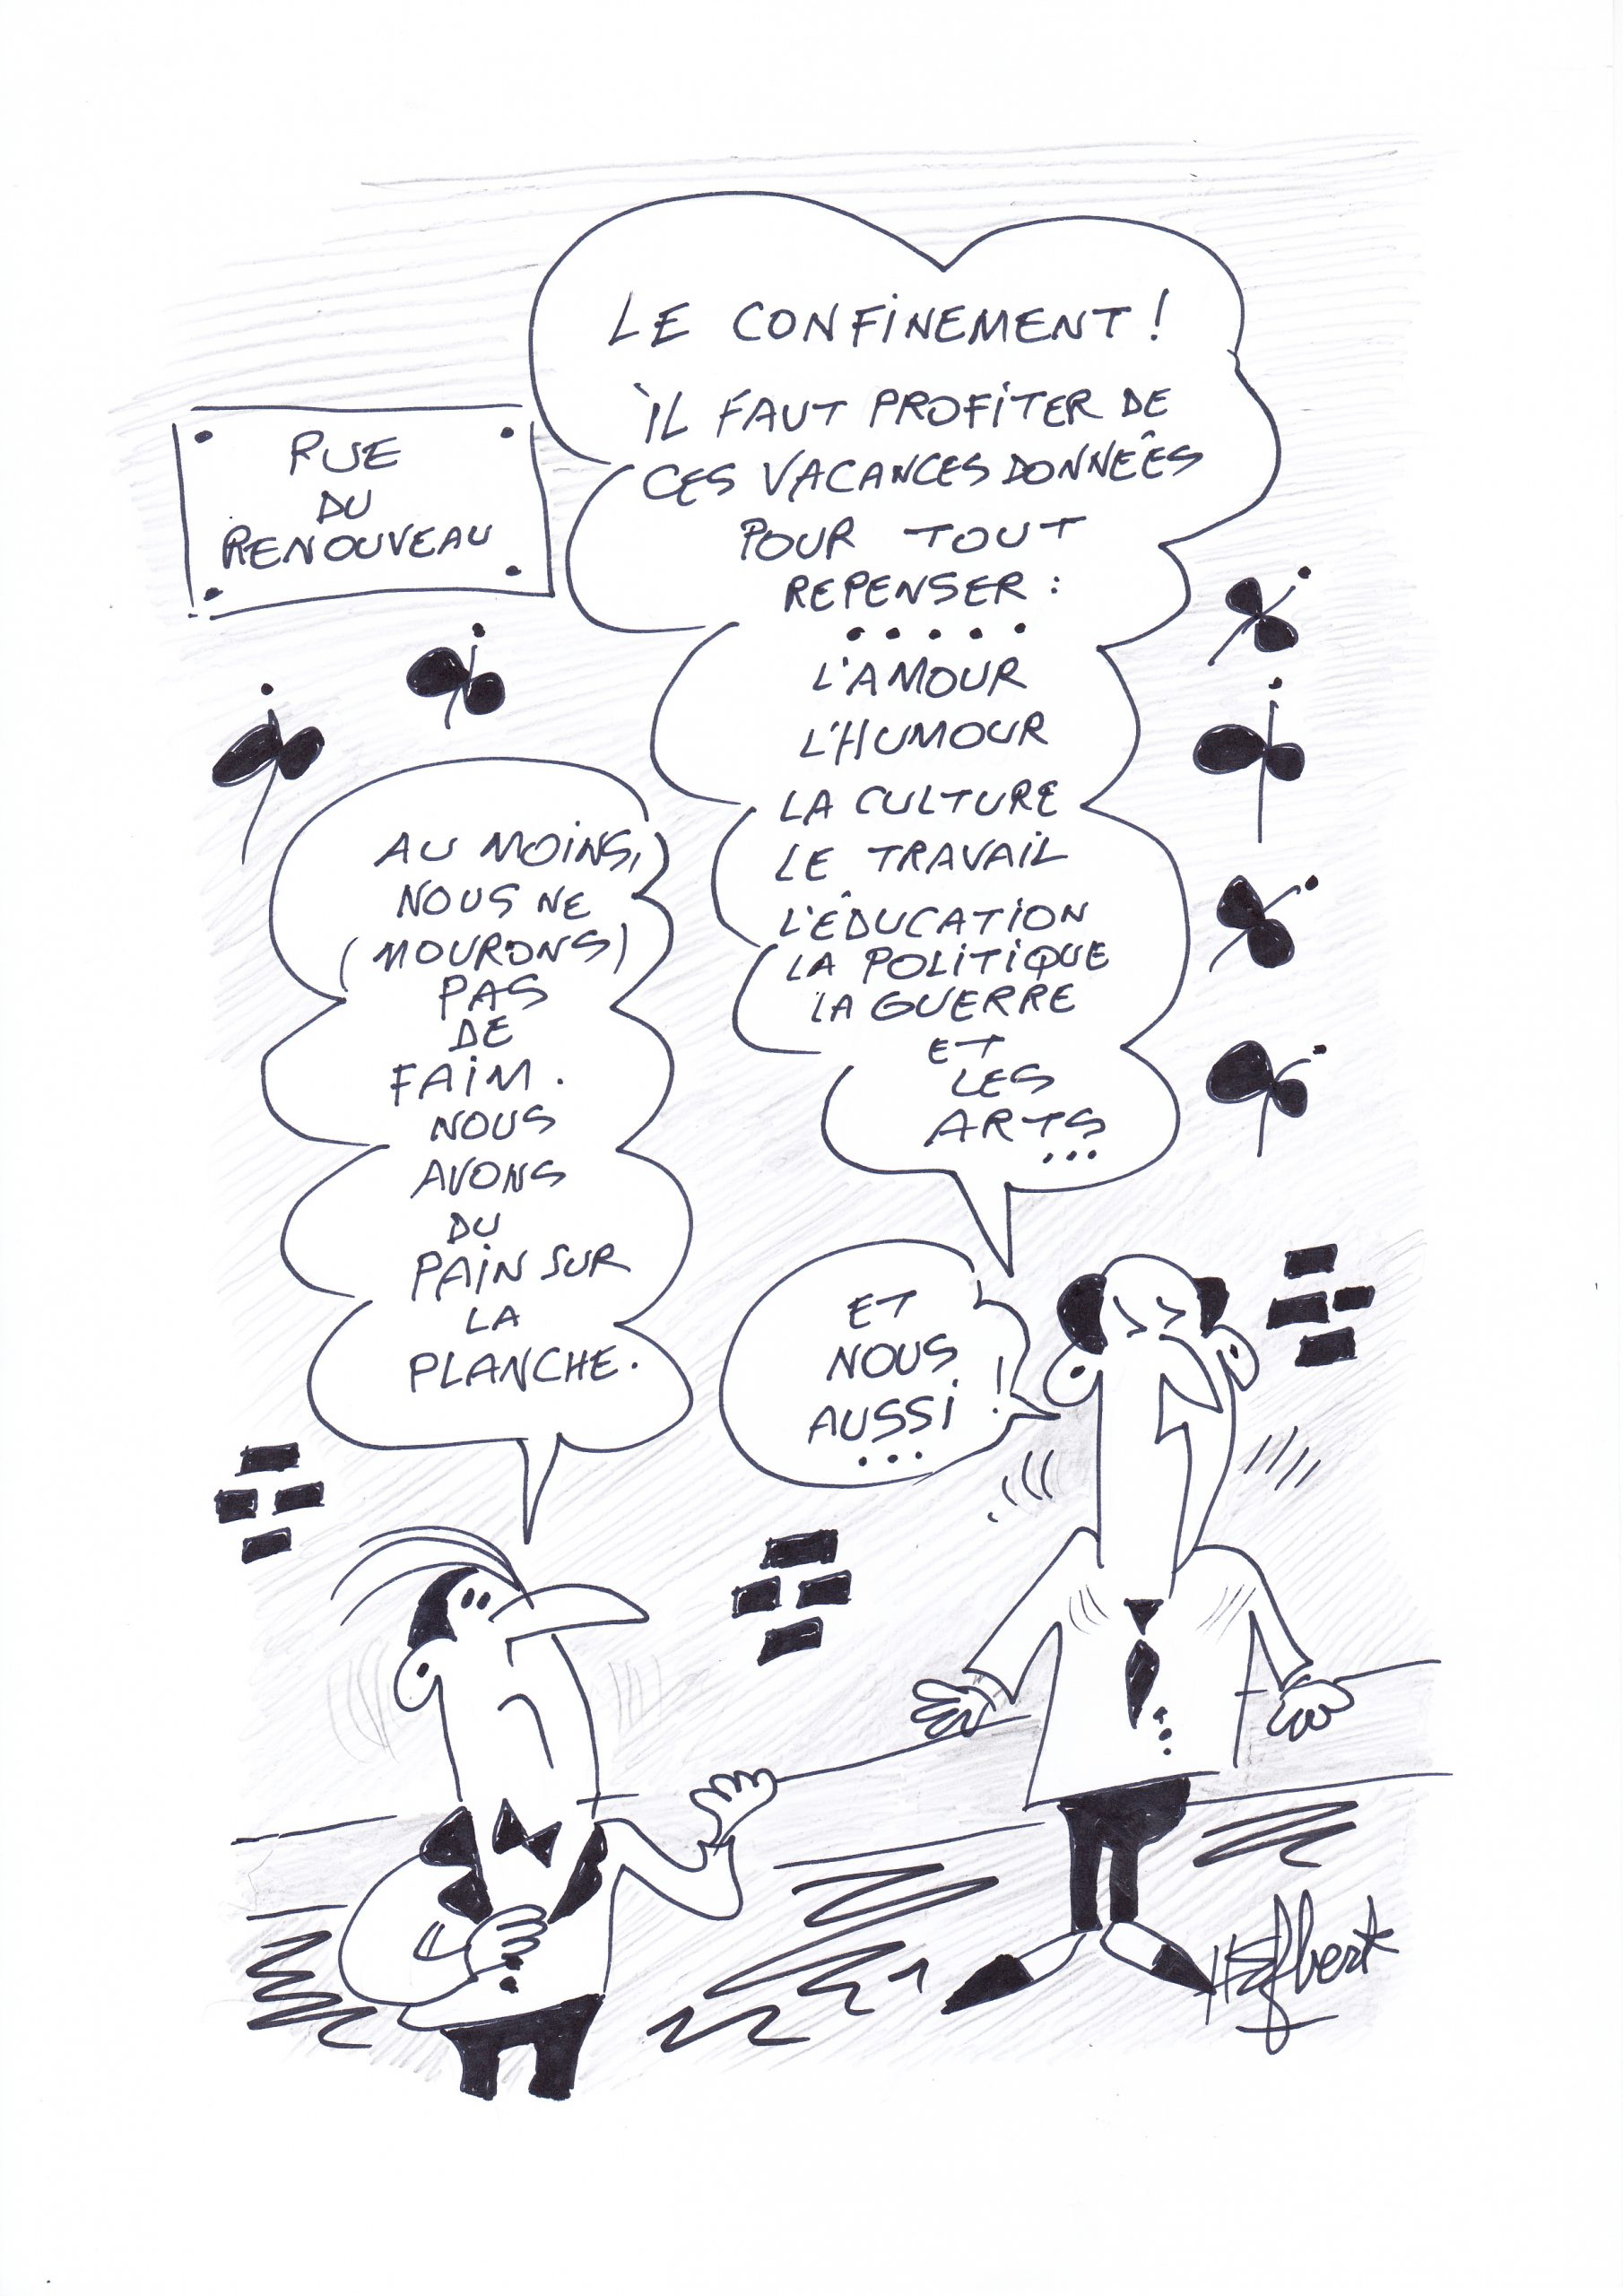 RUE
DU
RENOUVEAU
LE CONFINEMENT !
IL FAUT PROFITER DE
CES VACANCES DONNÉES
POUR TOUT
REPENSER :
.....
L'AMOUR
L'HUMOUR
LA CULTURE
LE TRAVAIL
L'ÉDUCATION
LA POLITIQUE
LA GUERRE
ET
LES
ARTS
...
ET
NOUS
AUSSI !
...
AU MOINS,
NOUS NE
(MOURONS)
PAS
DE
FAIM.
NOUS
AVONS
DU
PAIN SUR
LA
PLANCHE.